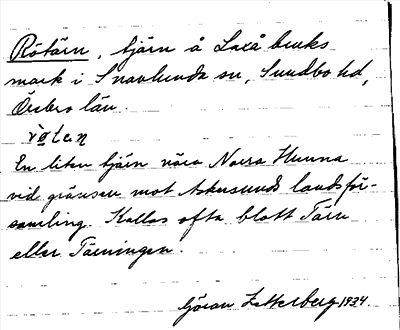 Rötärn, tjärn å Laxå bruks
mark i Snavlunda sn, Sundbo hd,
Örebro län.
röten
En liten tjärn nära Norra Hunna
vid gränsen mot Askersunds landsför-
samling. Kallas ofta blott Tärn
eller Tärningen.
Göran Zetterberg 1934